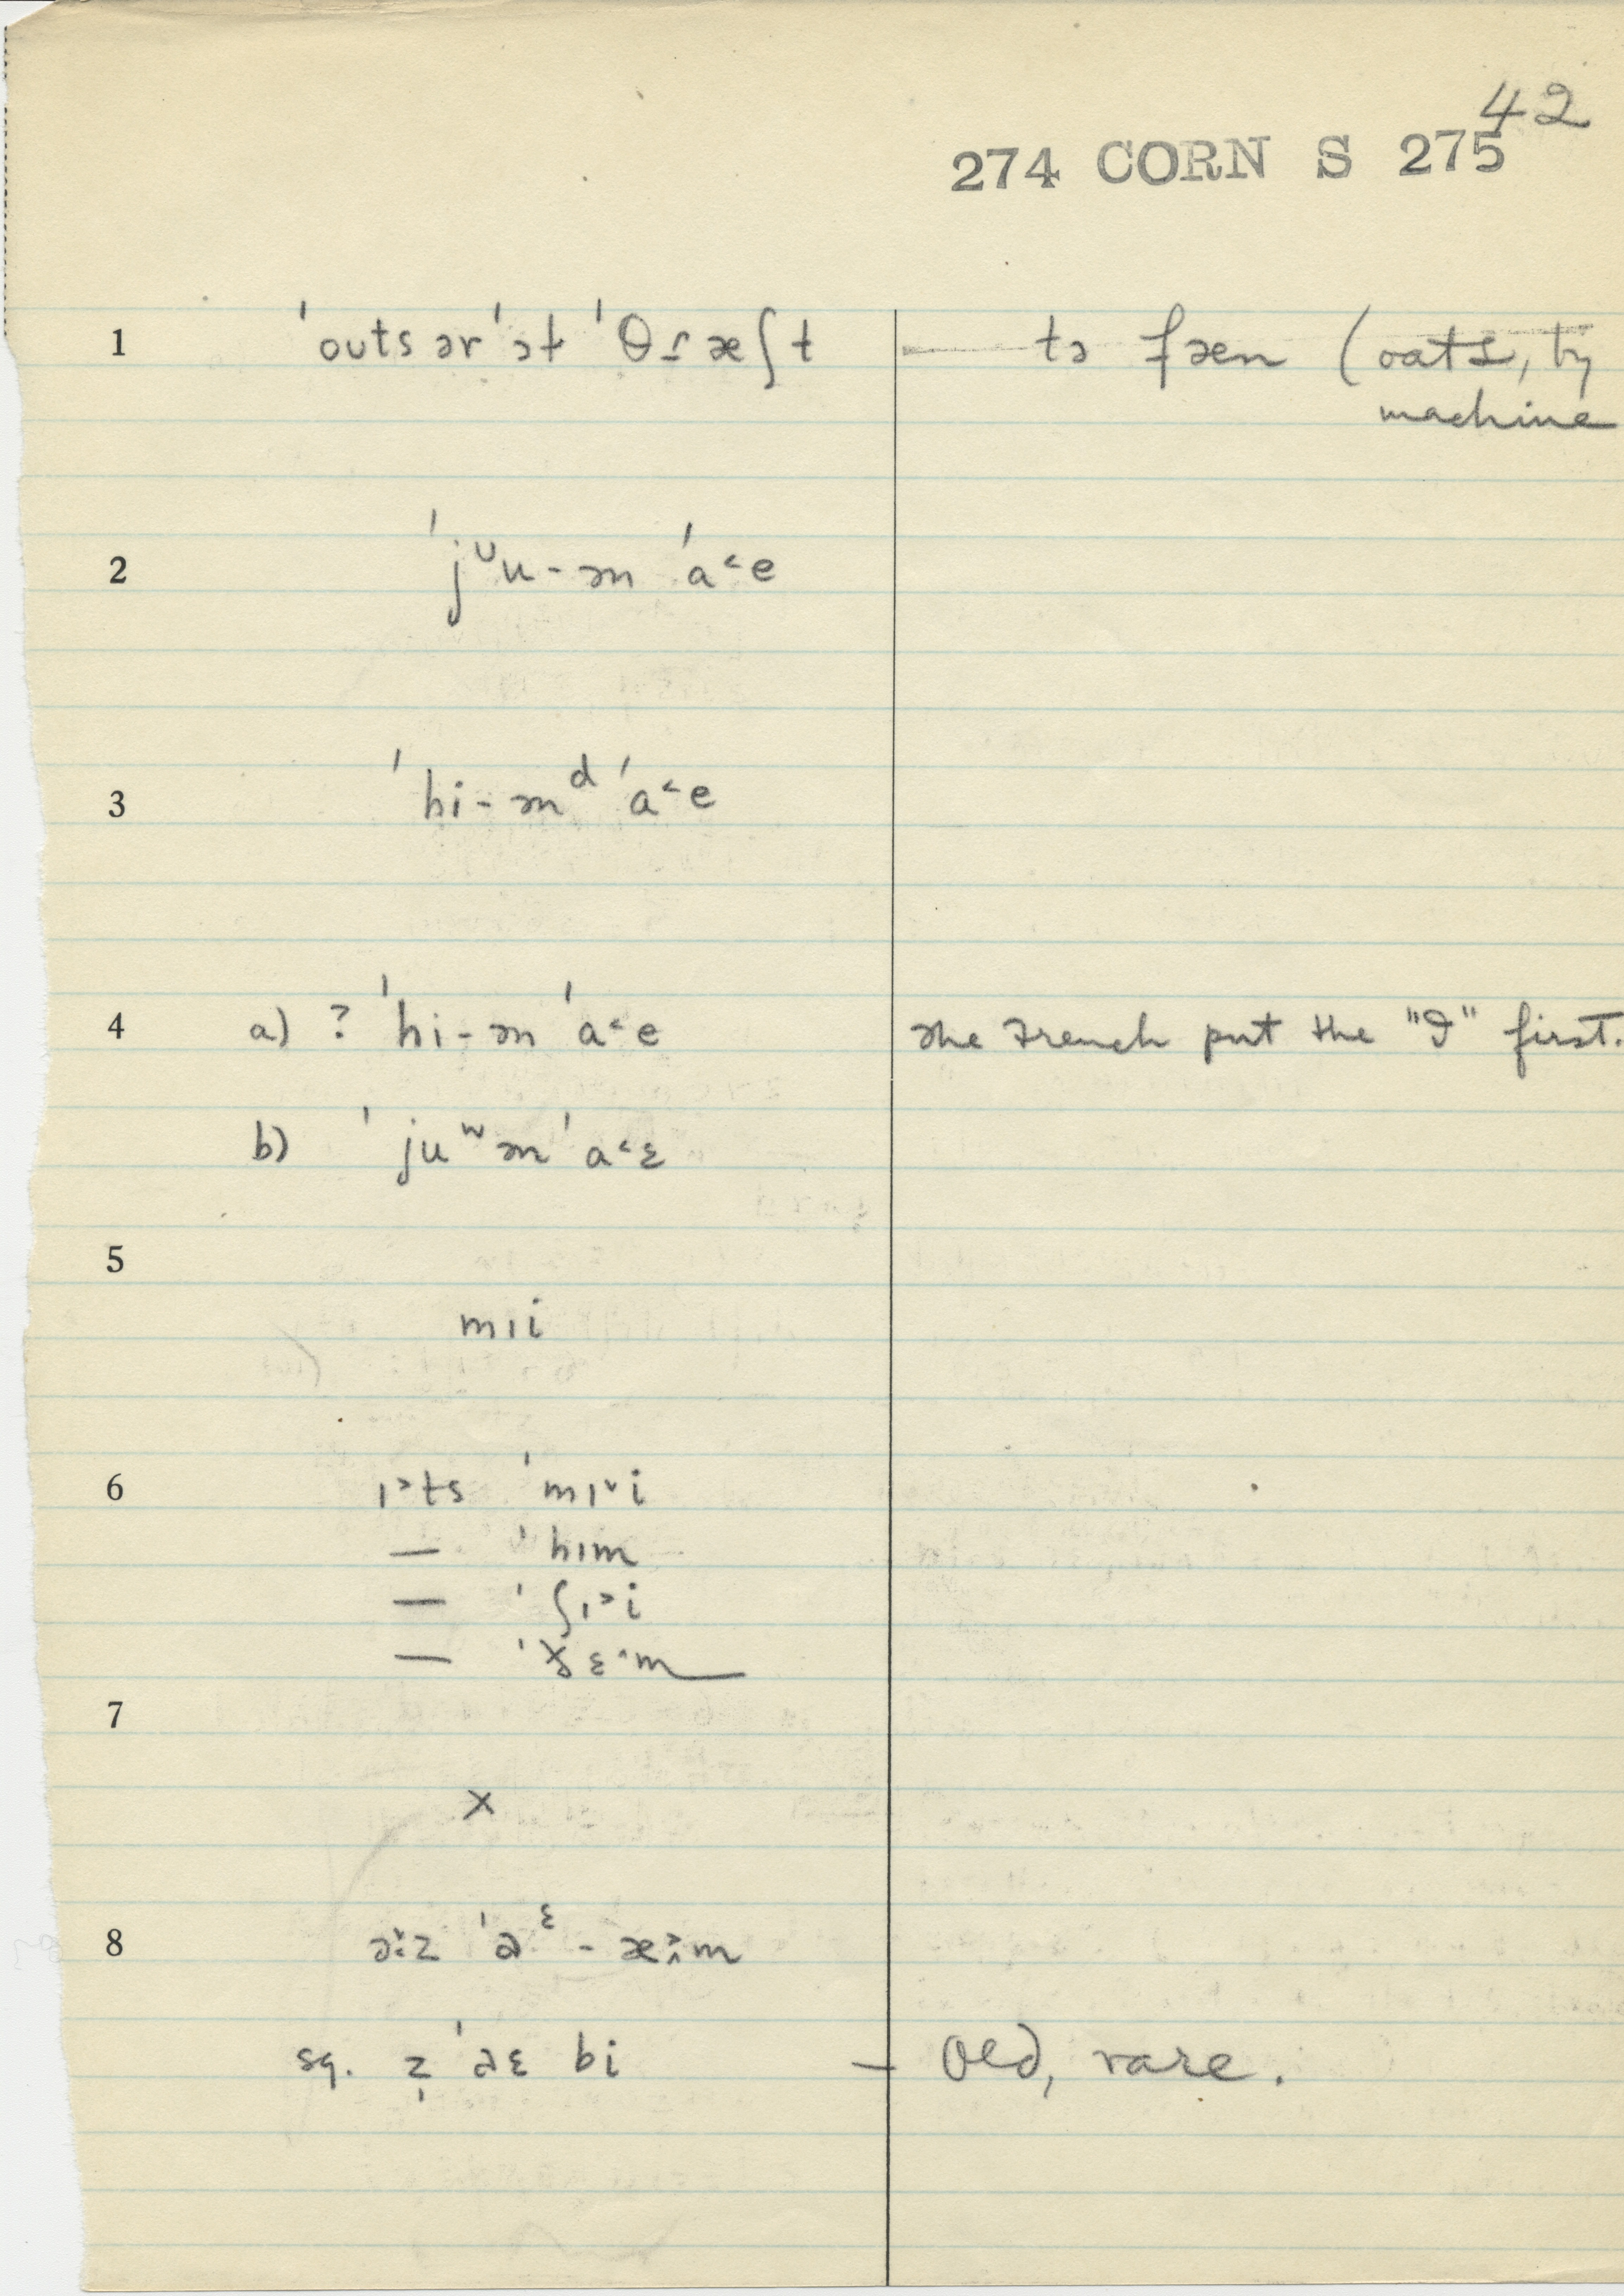 42
274 CORN S 275
1 ˈouts ər ˈət ˈθɾæʃt — tə fæn (oats, by
machine
2 ˈjᶷu-ən ˈa˂e
3 ˈhi-ənᵈ ˈa˂e
4 a) ? ˈhi-ən ˈa˂e The French put the "I" first.
b) ˈjuʷən ˈa˂ɛ
5
mɪi
6 ɪ˃ts ˈmɪ˅i
— ˈhɪm
— ˈʃɪ˃i
— ˈðɛ˄m
7
×
8 əz ˈaᵋ - æm
sq. z̩ ˈaɛ bi — Old, rare.